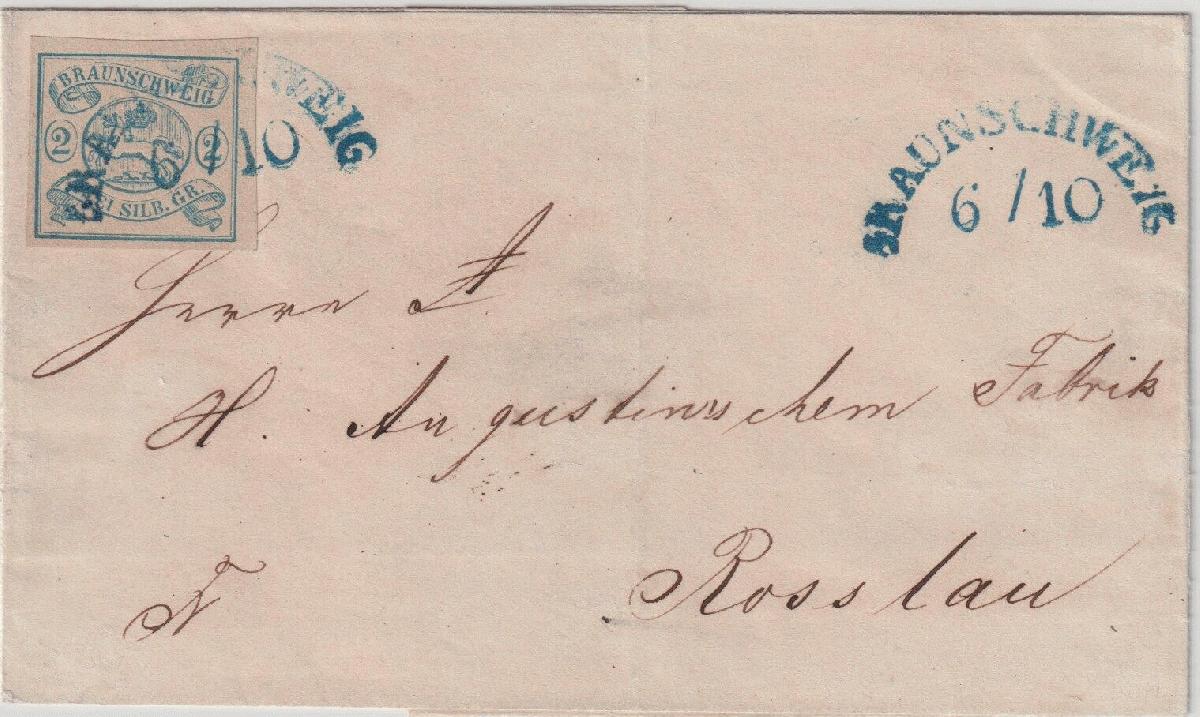 BRAUNSCHWEIG
2 2
EI SILB. GR.
BRA WEIG
6/10
BRAUNSCHWEIG
6/10
Herrn A.
H. Augustin'schem Fabrik
Rosslau